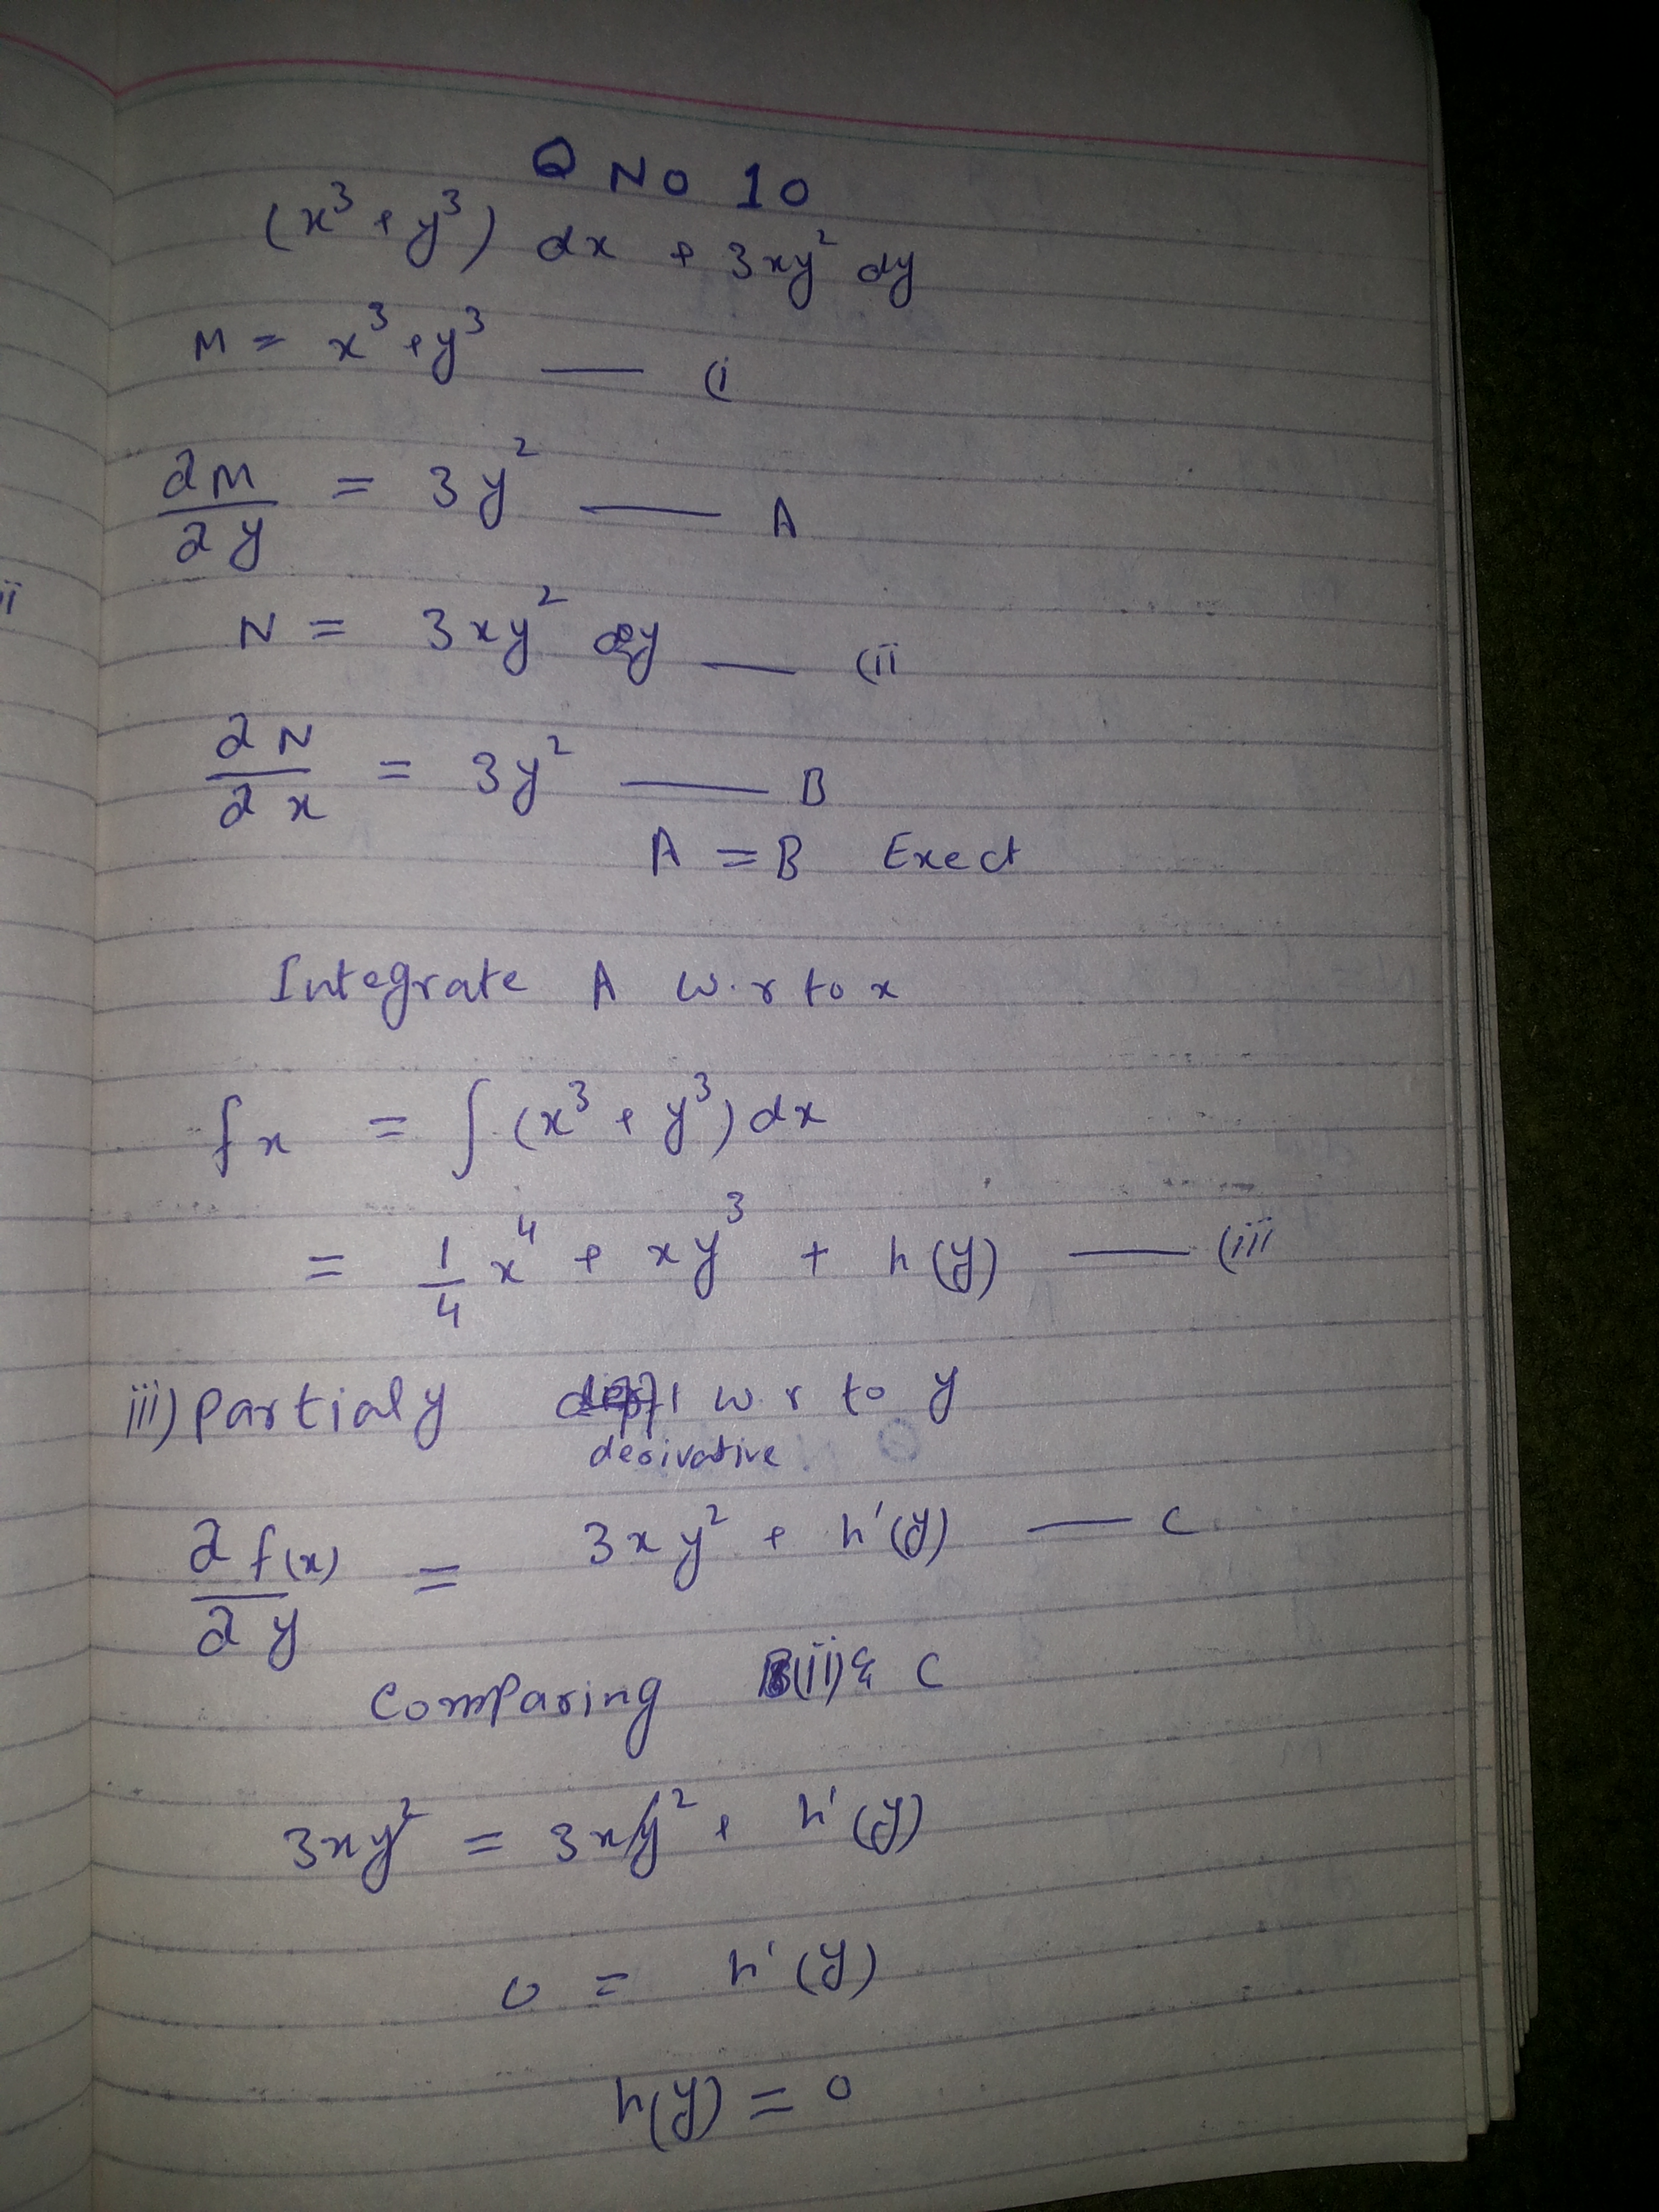 Q No 10
(x³ + y³) dx + 3xy² dy
M = x³ + y³ — (i
∂M/∂y = 3y² — A
ii
N = 3xy² dy — (ii
∂N/∂x = 3y² — B
A = B Exect
Integrate A w.r to x
fx = ∫(x³ + y³) dx
= 1/4 x⁴ + xy³ + h(y) — (iii
iii) Partialy w.r to y
derivative
∂f(x)/∂y = 3xy² + h'(y) — C
Comparing (ii) & C
3xy² = 3xy² + h'(y)
0 = h'(y)
h(y) = 0